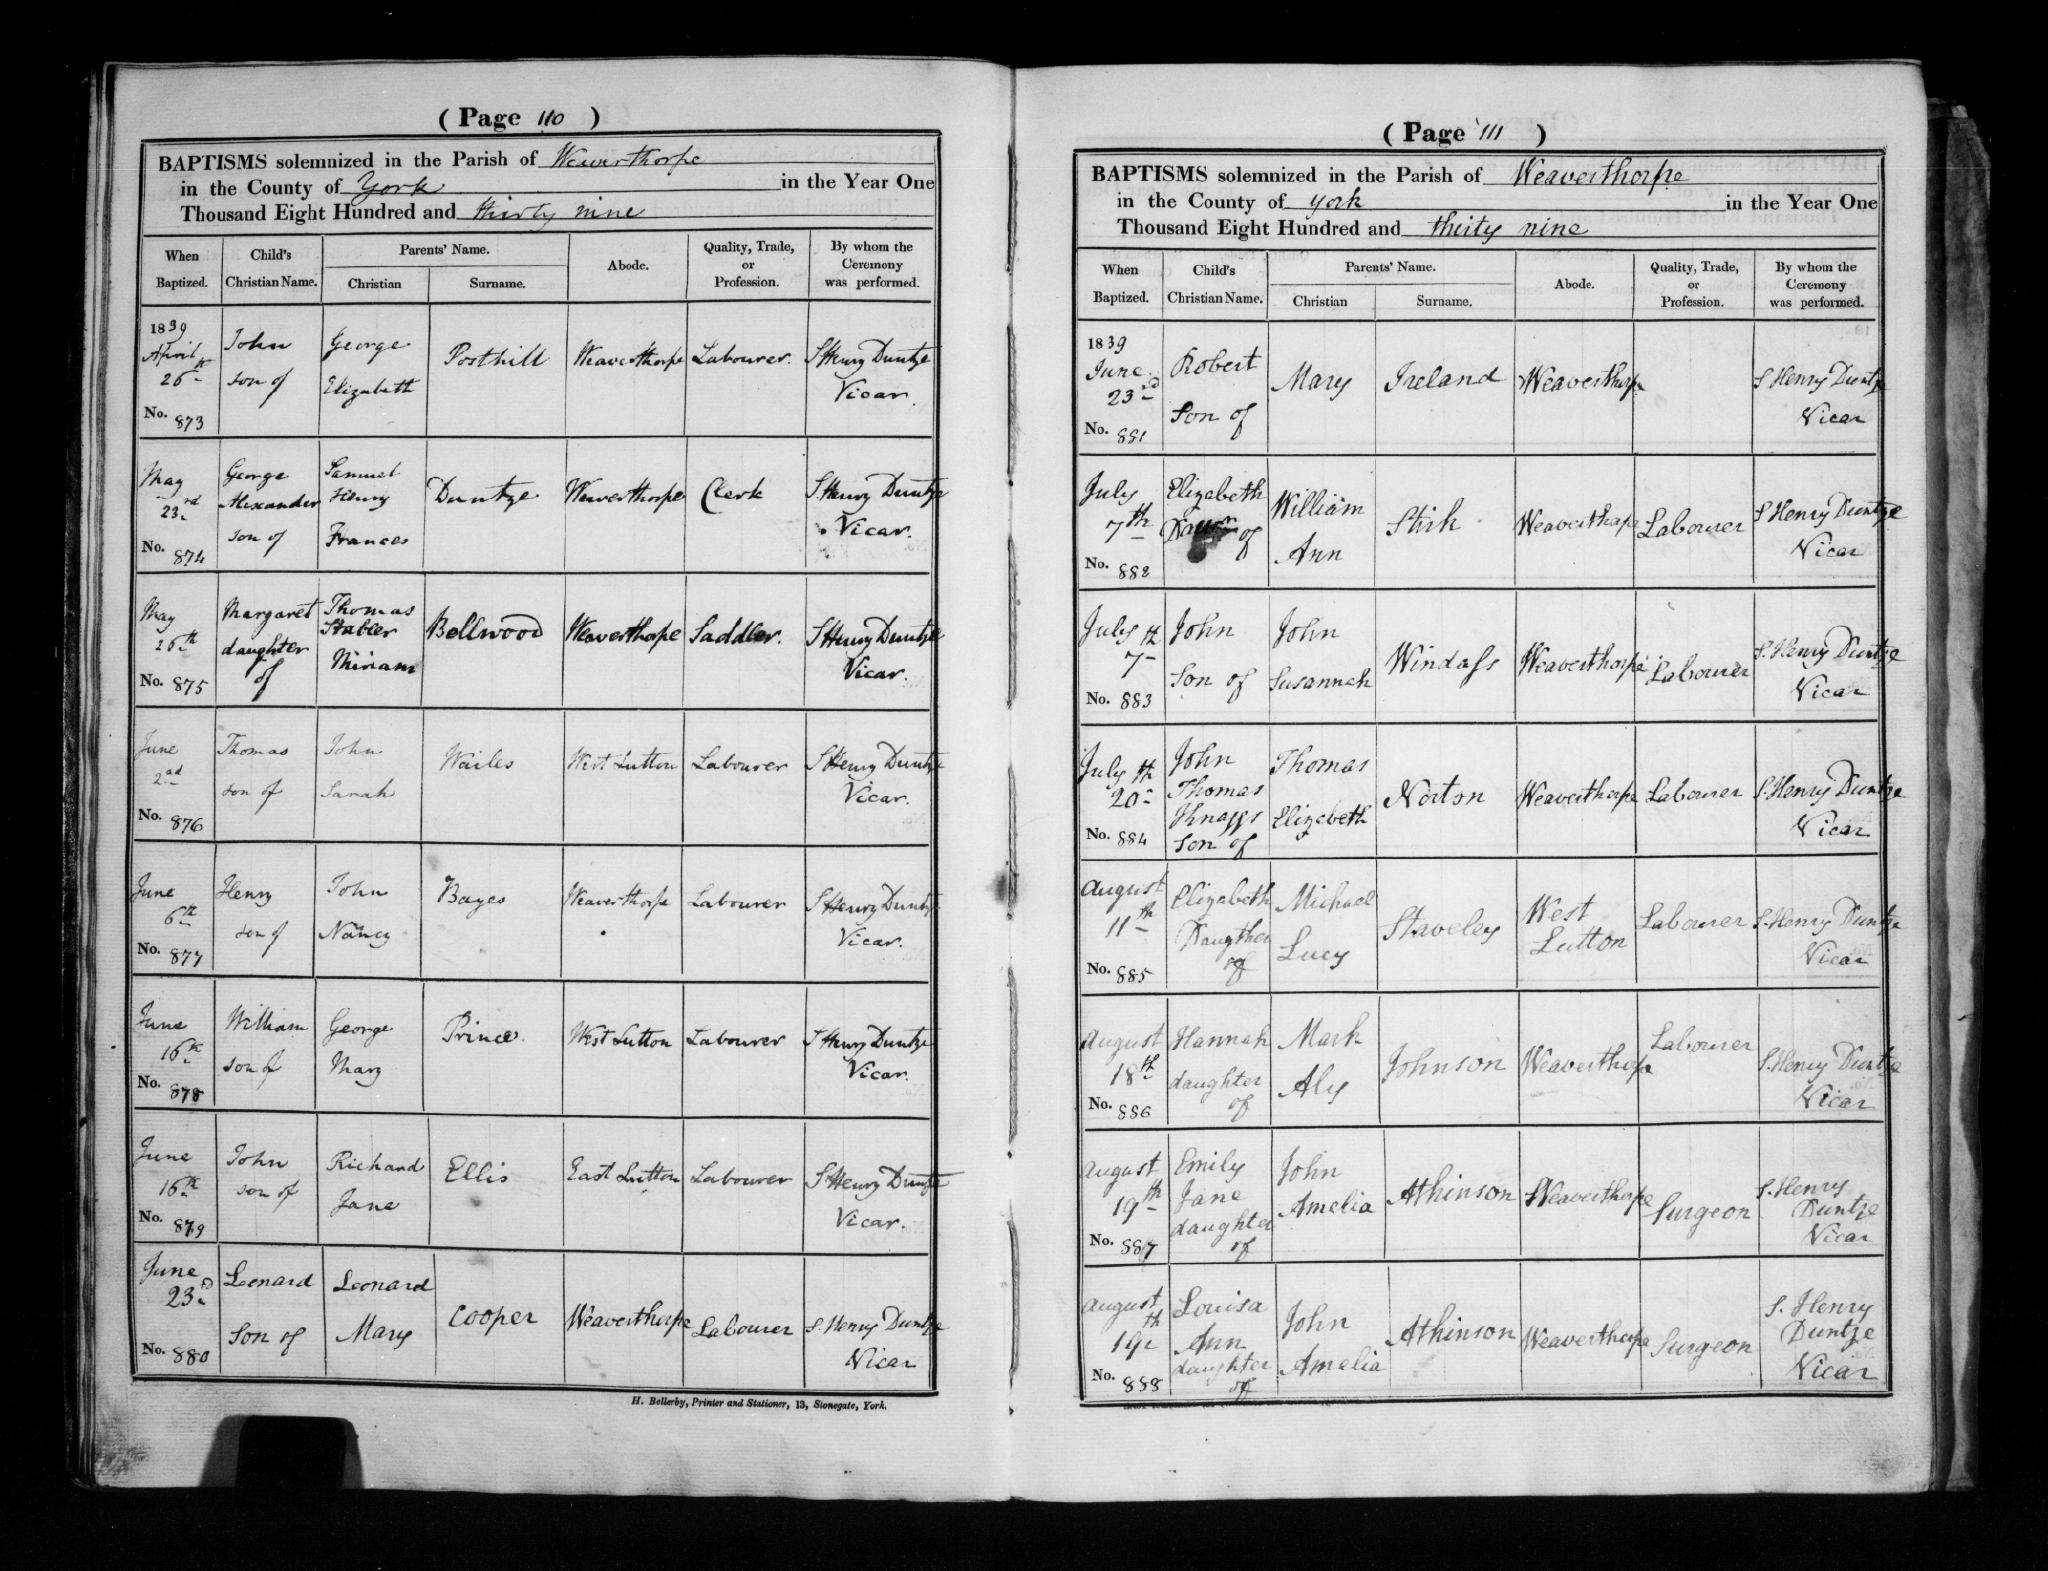 ( Page 110 )
BAPTISMS solemnized in the Parish of Weaverthorpe
in the County of York in the Year One
Thousand Eight Hundred and thirty nine
When Baptized. Child's Christian Name. Parents' Name. Christian Surname. Abode. Quality, Trade, or Profession. By whom the Ceremony was performed.
1839 April 26th No. 873 John son of George Elizabeth Posthill Weaverthorpe Labourer. S Henry Duntze Vicar.
May 23rd No. 874 George Alexander son of Samuel Henry Frances Duntze Weaverthorpe Clerk S Henry Duntze Vicar.
May 26th No. 875 Margaret daughter of Thomas Stabler Miriam Bellwood Weaverthorpe Saddler. S Henry Duntze Vicar.
June 2nd No. 876 Thomas son of John Sarah Wailes West Lutton Labourer S Henry Duntze Vicar.
June 6th No. 877 Henry son of John Nancy Bayes Weaverthorpe Labourer S Henry Duntze Vicar.
June 16th No. 878 William son of George Mary Prince. West Lutton Labourer S Henry Duntze Vicar.
June 16th No. 879 John son of Richard Jane Ellis East Lutton Labourer S Henry Duntze Vicar.
June 23d No. 880 Leonard Son of Leonard Mary Cooper Weaverthorpe Labourer S. Henry Duntze Vicar
H. Bellerby, Printer and Stationer, 13, Stonegate, York.
( Page 111 )
BAPTISMS solemnized in the Parish of Weaverthorpe
in the County of york in the Year One
Thousand Eight Hundred and thirty nine
When Baptized. Child's Christian Name. Parents' Name. Christian Surname. Abode. Quality, Trade, or Profession. By whom the Ceremony was performed.
1839 June 23d No. 881 Robert Son of Mary Ireland Weaverthorpe S Henry Duntze Vicar
July 7th No. 882 Elizabeth of William Ann Stirk Weaverthorpe Labourer S Henry Duntze Vicar
July 7th No. 883 John Son of John Susannah Windass Weaverthorpe Labourer S. Henry Duntze Vicar
July 20th No. 884 John Thomas Knaggs Son of Thomas Elizabeth Norton Weaverthorpe Labourer S. Henry Duntze Vicar
August 11th No. 885 Elizabeth Daugther of Michael Lucy Staveley West Lutton Labourer S. Henry Duntze Vicar
August 18th No. 886 Hannah daughter of Mark Aly Johnson Weaverthorpe Labourer S. Henry Duntze Vicar
August 19th No. 887 Emily Jane daughter of John Amelia Atkinson Weaverthorpe Surgeon S. Henry Duntze Vicar
August 19th No. 888 Louisa Ann daughter of John Amelia Atkinson Weaverthorpe Surgeon S. Henry Duntze Vicar